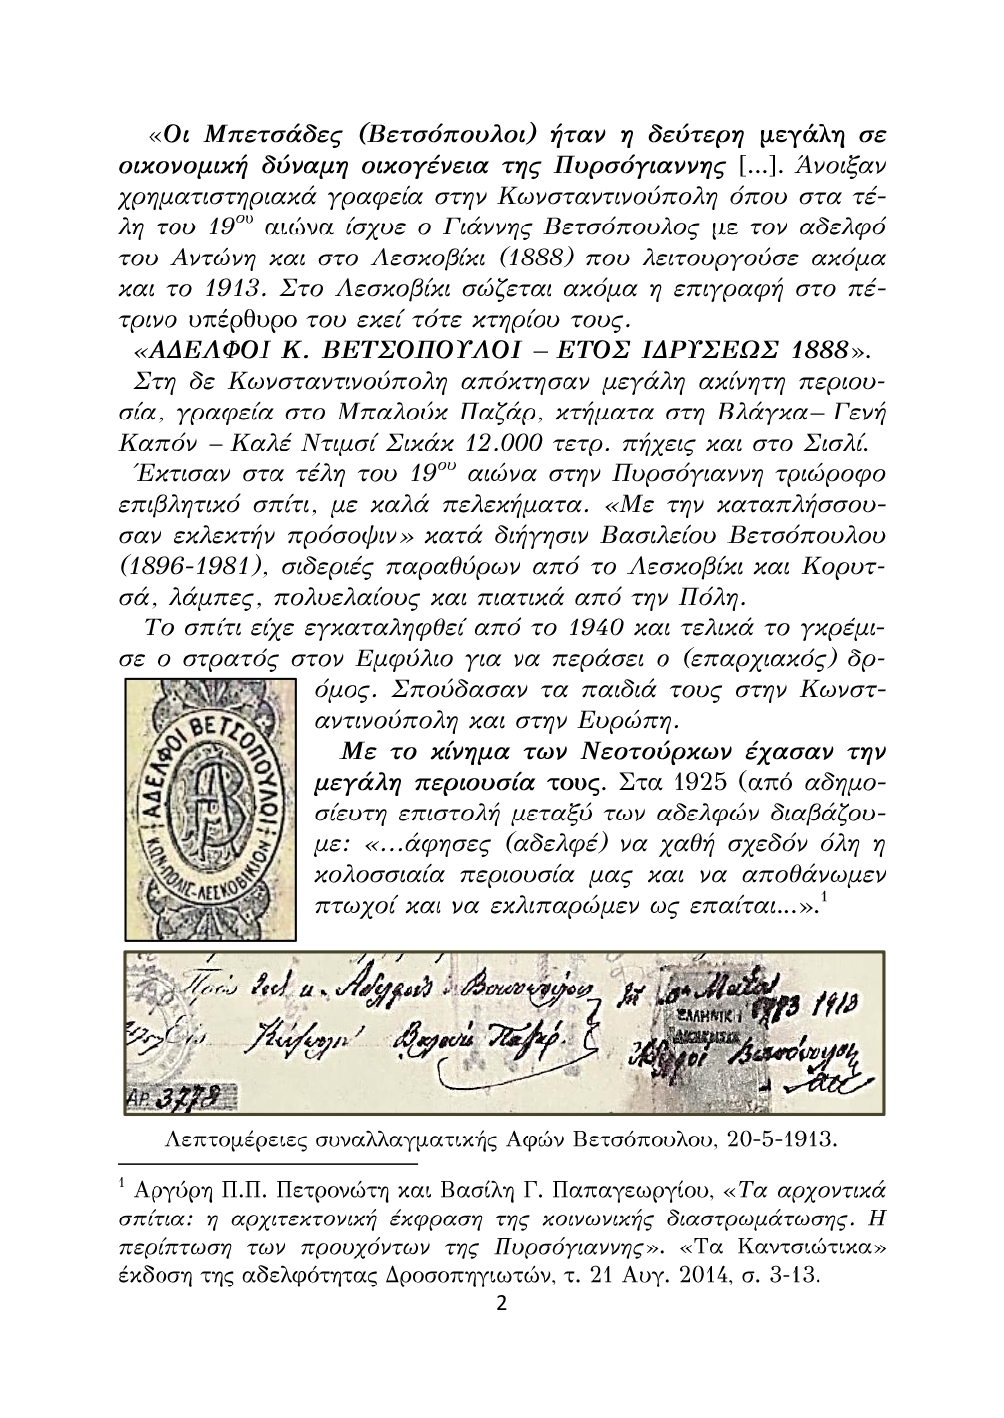 «Οι Μπετσάδες (Βετσόπουλοι) ήταν η δεύτερη μεγάλη σε
οικονομική δύναμη οικογένεια της Πυρσόγιαννης [...]. Άνοιξαν
χρηματιστηριακά γραφεία στην Κωνσταντινούπολη όπου στα τέ-
λη του 19ου αιώνα ίσχυε ο Γιάννης Βετσόπουλος με τον αδελφό
του Αντώνη και στο Λεσκοβίκι (1888) που λειτουργούσε ακόμα
και το 1913. Στο Λεσκοβίκι σώζεται ακόμα η επιγραφή στο πέ-
τρινο υπέρθυρο του εκεί τότε κτηρίου τους.
«ΑΔΕΛΦΟΙ Κ. ΒΕΤΣΟΠΟΥΛΟΙ – ΕΤΟΣ ΙΔΡΥΣΕΩΣ 1888».
Στη δε Κωνσταντινούπολη απόκτησαν μεγάλη ακίνητη περιου-
σία, γραφεία στο Μπαλούκ Παζάρ, κτήματα στη Βλάγκα– Γενή
Καπόν – Καλέ Ντιμσί Σικάκ 12.000 τετρ. πήχεις και στο Σισλί.
Έκτισαν στα τέλη του 19ου αιώνα στην Πυρσόγιαννη τριώροφο
επιβλητικό σπίτι, με καλά πελεκήματα. «Με την καταπλήσσου-
σαν εκλεκτήν πρόσοψιν» κατά διήγησιν Βασιλείου Βετσόπουλου
(1896-1981), σιδεριές παραθύρων από το Λεσκοβίκι και Κορυτ-
σά, λάμπες, πολυελαίους και πιατικά από την Πόλη.
Το σπίτι είχε εγκαταληφθεί από το 1940 και τελικά το γκρέμι-
σε ο στρατός στον Εμφύλιο για να περάσει ο (επαρχιακός) δρ-
όμος. Σπούδασαν τα παιδιά τους στην Κωνστ-
αντινούπολη και στην Ευρώπη.
Με το κίνημα των Νεοτούρκων έχασαν την
μεγάλη περιουσία τους. Στα 1925 (από αδημο-
σίευτη επιστολή μεταξύ των αδελφών διαβάζου-
με: «...άφησες (αδελφέ) να χαθή σχεδόν όλη η
κολοσσιαία περιουσία μας και να αποθάνωμεν
πτωχοί και να εκλιπαρώμεν ως επαίται...».1
ΑΔΕΛΦΟΙ ΒΕΤΣΟΠΟΥΛΟΙ
ΑΒ
ΚΩΝ-ΠΟΛΙΣ-ΛΕΣΚΟΒΙΚΙΟΝ
Αδελφούς Βετσοπούλου
1913
ΕΛΛΗΝΙΚΗ
ΔΙΟΙΚΗΣΙΣ
Παζάρ.
ΑΡ. 3778
Λεπτομέρειες συναλλαγματικής Αφών Βετσόπουλου, 20-5-1913.
1 Αργύρη Π.Π. Πετρονώτη και Βασίλη Γ. Παπαγεωργίου, «Τα αρχοντικά
σπίτια: η αρχιτεκτονική έκφραση της κοινωνικής διαστρωμάτωσης. Η
περίπτωση των προυχόντων της Πυρσόγιαννης». «Τα Καντσιώτικα»
έκδοση της αδελφότητας Δροσοπηγιωτών, τ. 21 Αυγ. 2014, σ. 3-13.
2